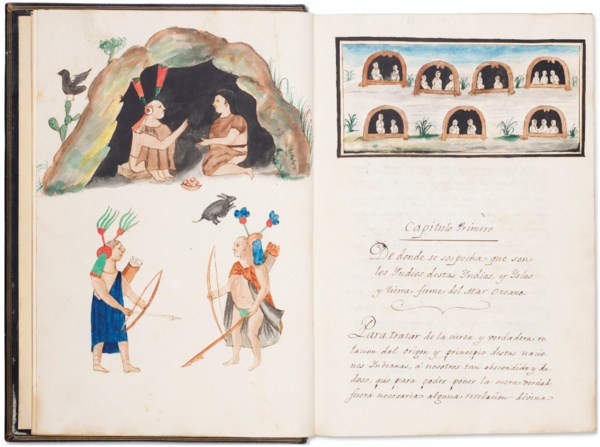 Capitulo Primero
De donde se sospecha que son
los Indios destas Yndias, y Yslas
y tierra firme del Mar Oceano.
Para tratar de la cierta y verdadera re-
lacion del origen y principio destas nacio-
nes Indianas, á nosotros tan abscondido y du-
doso, que para poder poner la mera verdad
fuera necesaria alguna revelacion divina